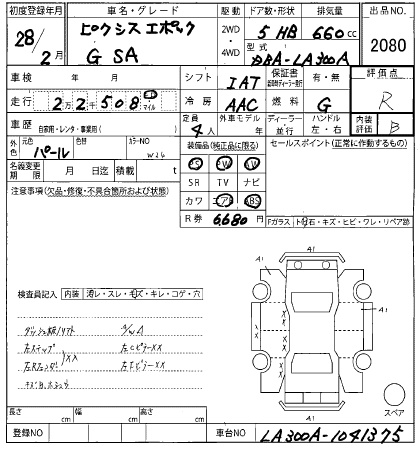 初度登録年月 車名・グレード 駆動 ドア数・形状 排気量 出品NO
28/2月 ピクシス エポック 2WD・4WD 5 HB 660cc 2080
G SA 型式 DBA-LA300A
車検 年 月 シフト IAT 保証書 有・無 評価点
走行 22508 km マイル 冷房 AAC 燃料 G R
車歴 自家用・レンタ・事業用( ) 定員 4人 外車モデル 年 ディーラー・並行 ハンドル 左・右 内装評価 B
外色 元色 パール 色替 カラーNO W24 装備品(純正品に限る) セールスポイント(正常に動作するもの)
名義変更期限 月 日迄 積載 t PS PW AW
SR TV ナビ
注意事項(欠品・修復・不具合箇所および状態) カワ エアB ABS
R券 6,680円 Fガラス 卜石・キズ・ヒビ・ワレ・リペア跡
A1 A1
検査員記入 内装 汚レ・スレ・キズ・キレ・コゲ・穴
左ステップ 左CピラーXX
XX
A1
スペア
長さ cm 幅 cm 高さ cm
登録NO 車台NO LA300A-1041375